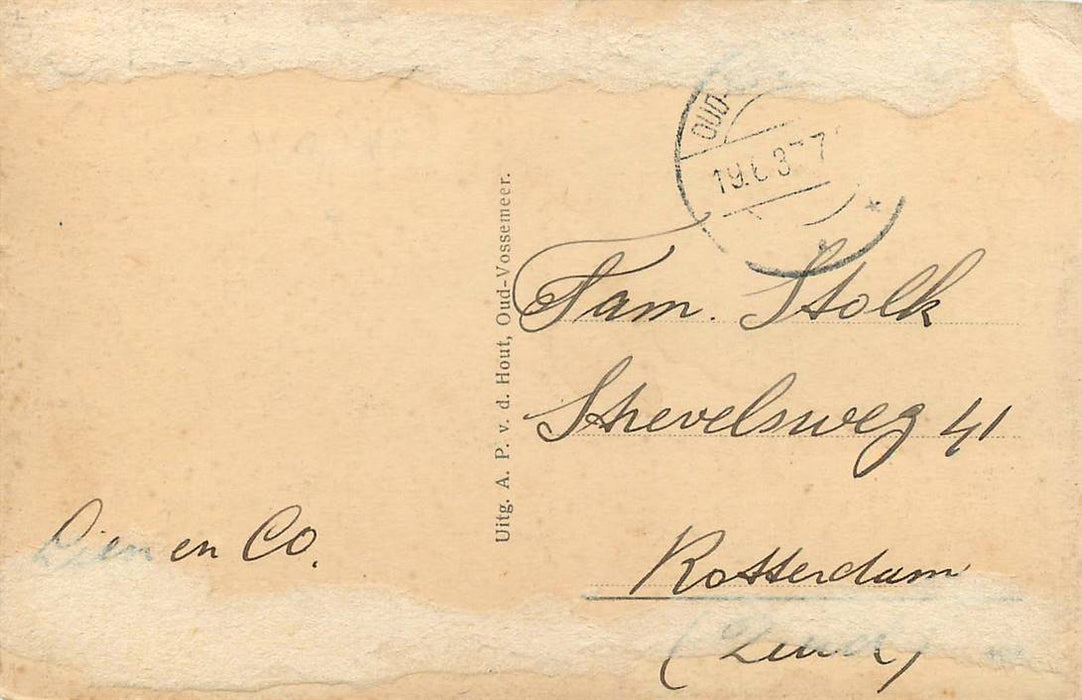 OUD-
19.6.37.7
Uitg. A. P. v. d. Hout, Oud-Vossemeer.
Fam. Stolk
Strevelsweg 41
Rotterdam
(Zuid)
Lien en Co.